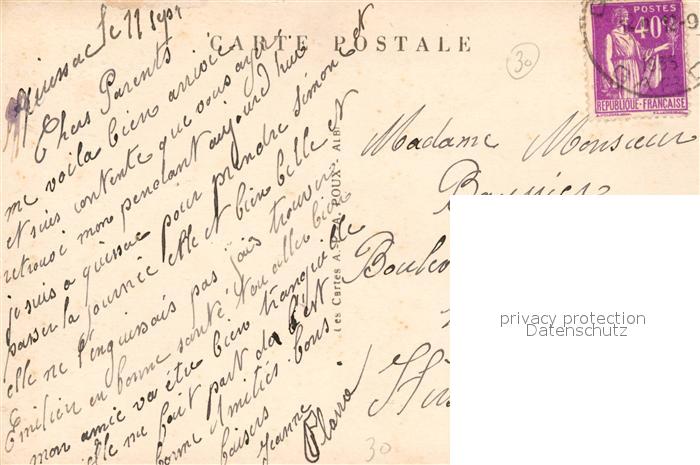 CARTE POSTALE
30
POSTES
40c
1935
REPUBLIQUE-FRANÇAISE
Quissac le 11 sept
Chers Parents
me voila bien arrivée
et suis contente que vous ayez
retrouvé mon pendant aujourd'hui
je suis a quissac pour prendre Simone et
passer la journée elle et bien belle et
elle ne pas jais trouver
Emilien en bonne santé tou aller bien
mon amie va étre bien tranquille
elle ne fait part de
bonne Amitiés bons
baisers
Jeanne
Les Cartes A. POUX - ALBI
Madame Monsieur
Boulev
privacy protection
Datenschutz
30